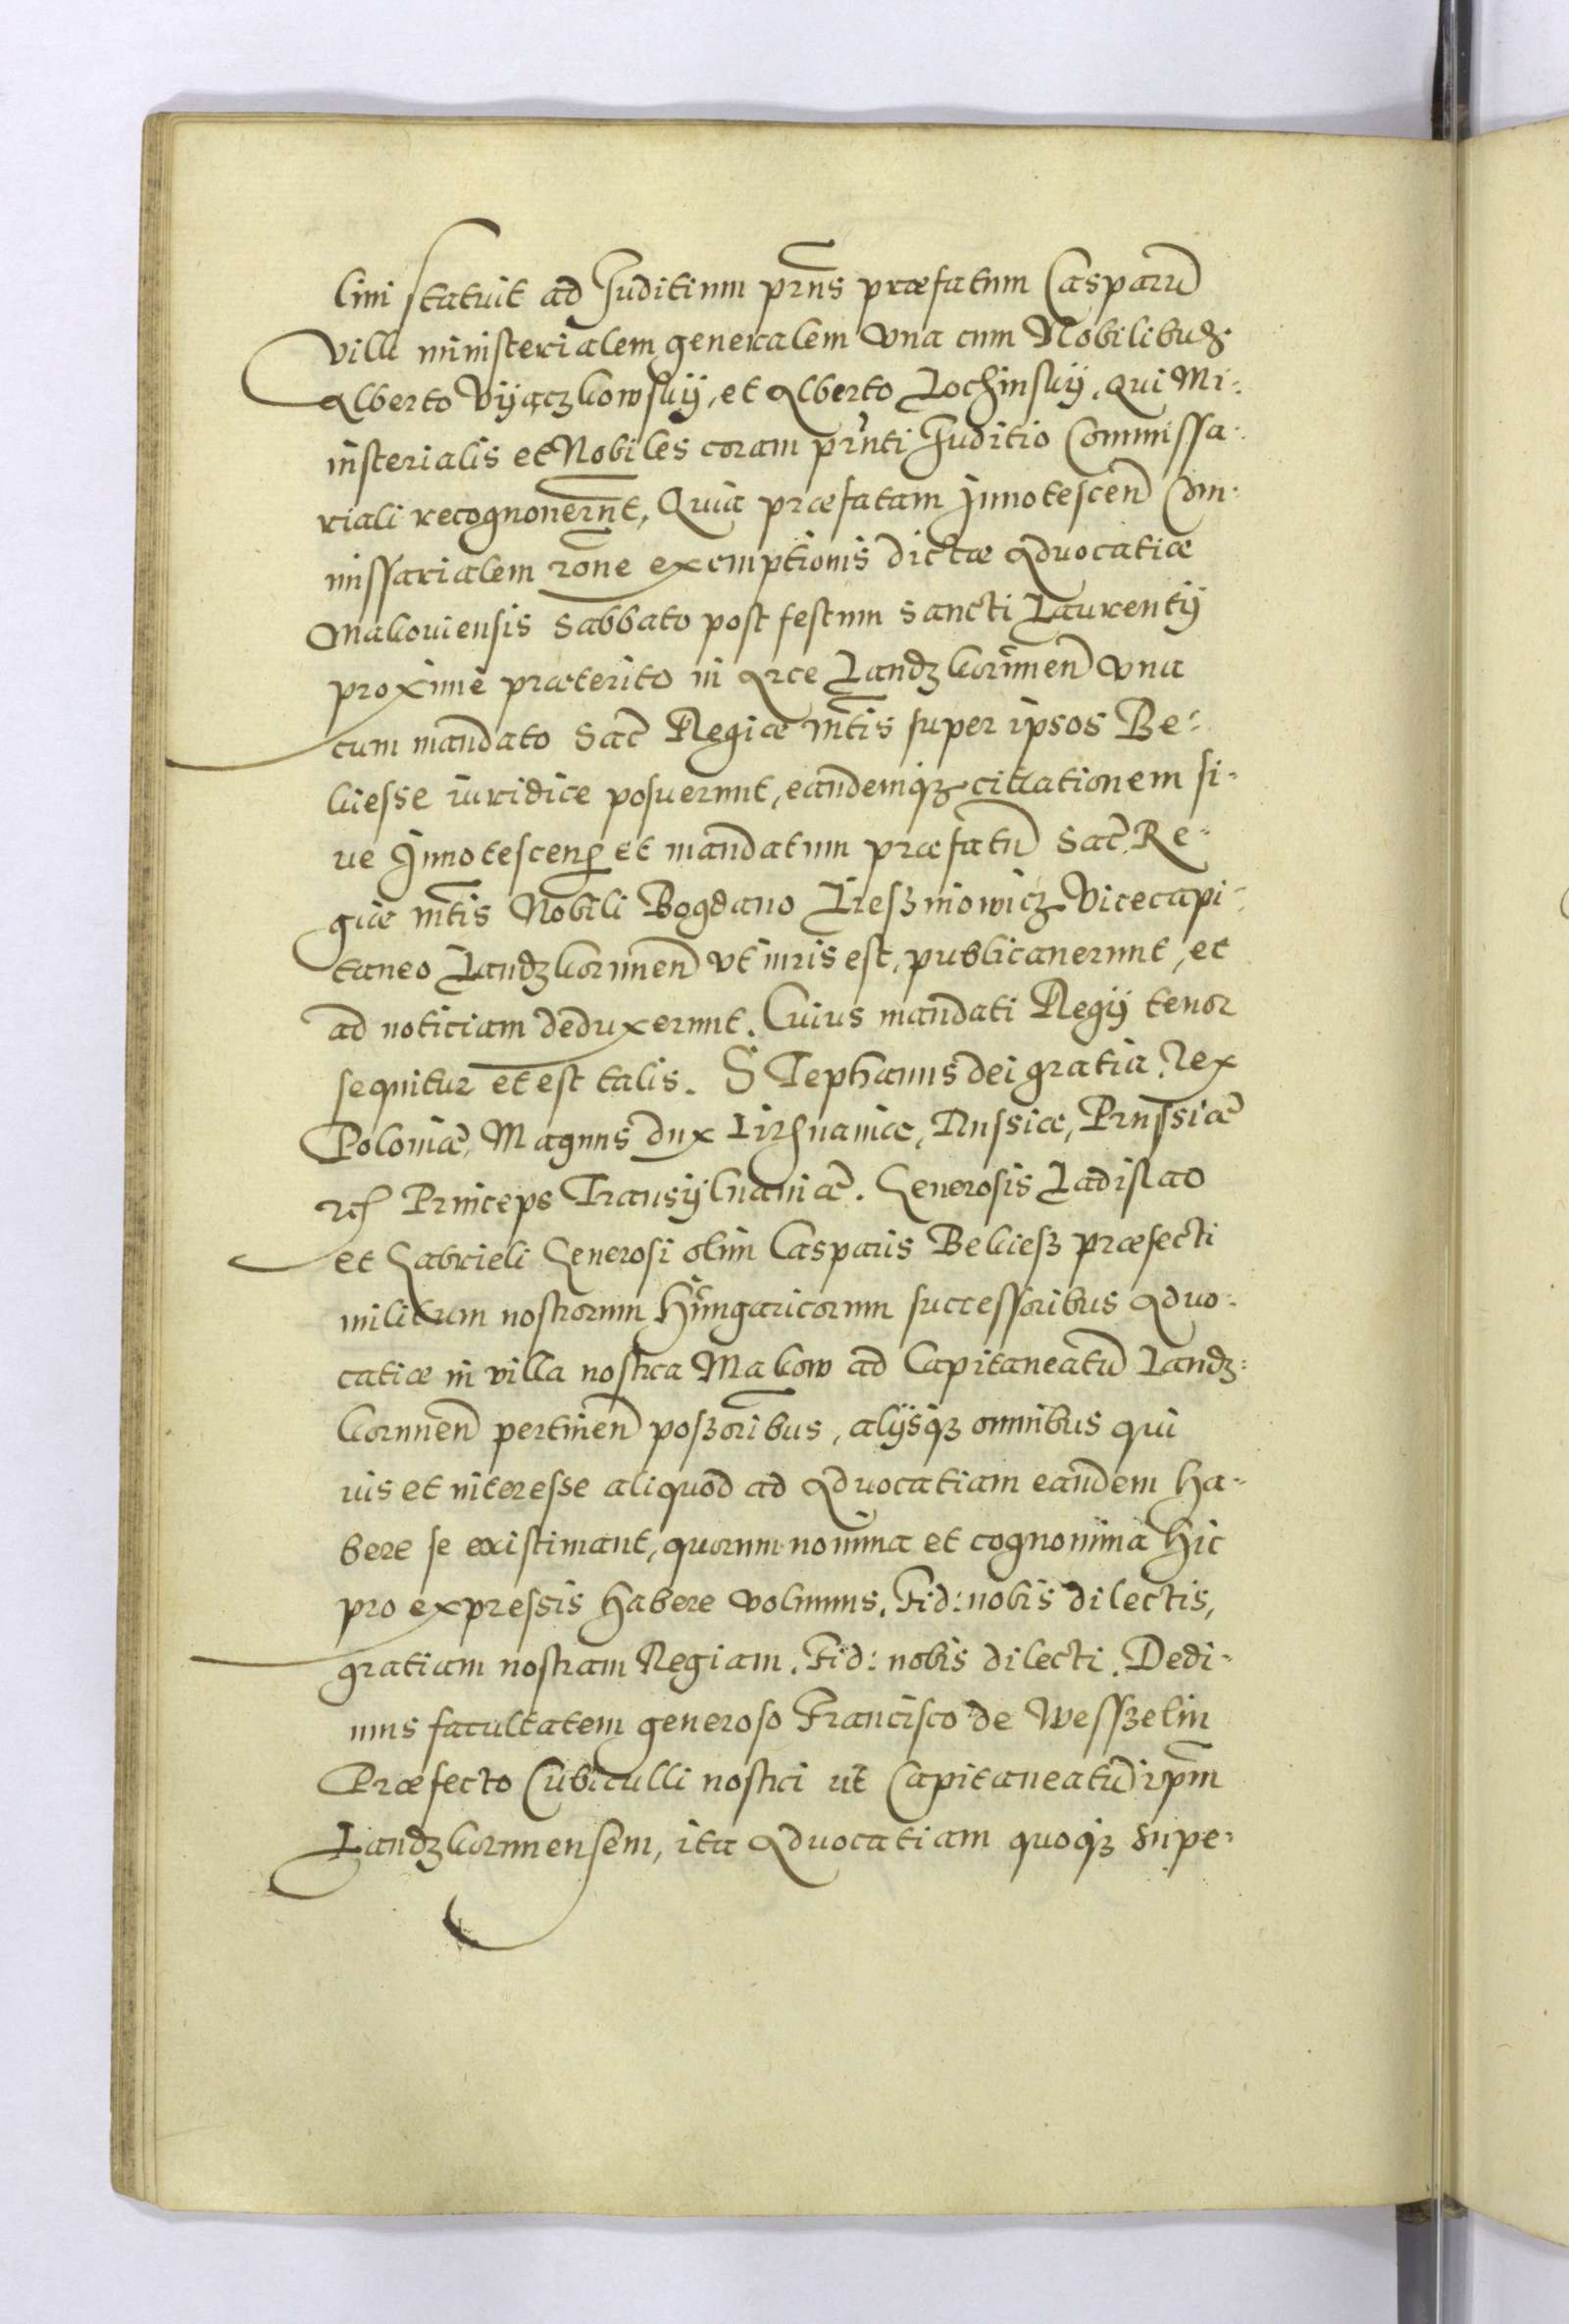 lini statuit ad Juditium prns præfatum Casparū
Vilk ministerialem generalem vna cum Nobilibus
Alberto Vÿączkowskÿ, et Alberto Lochinskÿ. Qui Mi-
nisterialis et Nobiles coram prnti Juditio Commissa-
riali recognouerunt, Quia præfatam Innotescen Com-
missarialem rōne exemptionis dictæ Aduocatiæ
Makouiensis Sabbato post festum Sancti Laurentÿ
proxime præterito in Arce Landzkorunen vna
cum mandato Sac Regiæ mtis super ipsos Be-
kiesse iuridice posuerunt, eandemqȝ cittationem si-
ue Innotescen et mandatum præfatū Sac. Re-
giæ mtis Nobili Bogdano Liesȝniowicz Vicecapi-
taneo Landzkorunen vt iuris est, publicauerunt, et
ad noticiam deduxerunt. Cuius mandati Regÿ tenor
sequitur et est talis. STephanus dei gratia Rex
Poloniæ, Magnus dux Lithuaniæ, Russiæ, Prussiæ
etc Princeps Transÿluaniæ. Generosis Ladislao
et Gabrieli Generosi olim Casparis Bekiesȝ præfecti
militum nostrorum Hungaricorum successoribus Aduo-
catiæ in villa nostra Makow ad Capitaneatū Landz-
korunen pertinen posȝoribus, alÿsqȝ omnibus qui
ius et interesse aliquod ad Aduocatiam eandem ha-
bere se existimant, quorum nomina et cognomina hic
pro expressis habere volumus. Fid: nobis dilectis,
gratiam nostram Regiam. Fid: nobis dilecti. Dedi-
mus facultatem generoso Francisco de Wessȝelin
Præfecto Cubiculli nostri ut Capitaneatū ipm
Landzkorunensem, ita Aduocatiam quoqȝ supe-